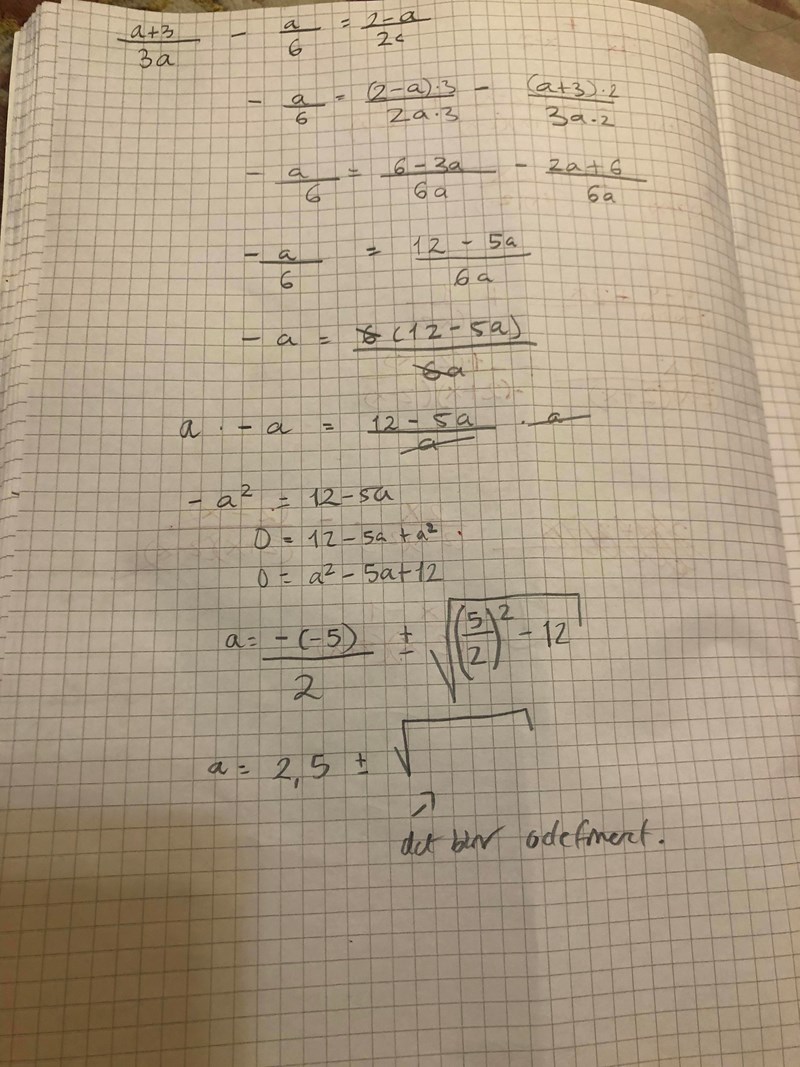 a+3/3a - a/6 = 2-a/2a
- a/6 = (2-a)·3/2a·3 - (a+3)·2/3a·2
- a/6 = 6-3a/6a - 2a+6/6a
- a/6 = 12-5a/6a
- a = 6(12-5a)/6a
a · -a = 12-5a/a · a
- a² = 12-5a
0 = 12-5a+a²
0 = a²-5a+12
a = -(-5)/2 ± √(5/2)²-12
a = 2,5 ± √
det blir odefinerat.